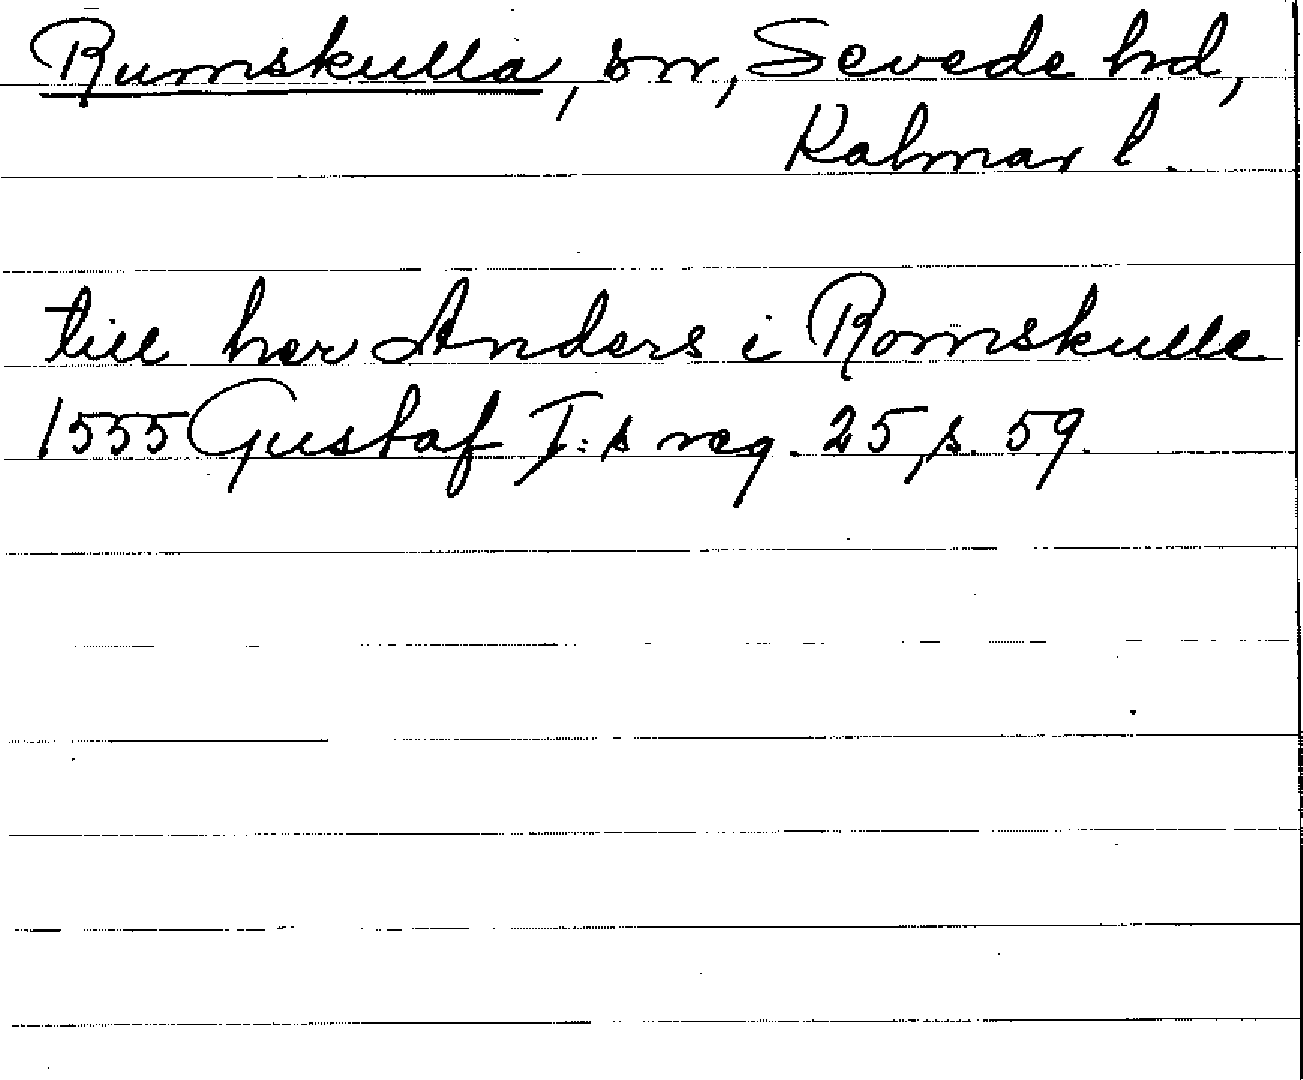 Rumskulla, sn, Sevede hd,
Kalmar l.
till her Anders i Romskulle
1555 Gustaf I:s reg. 25, s. 59.